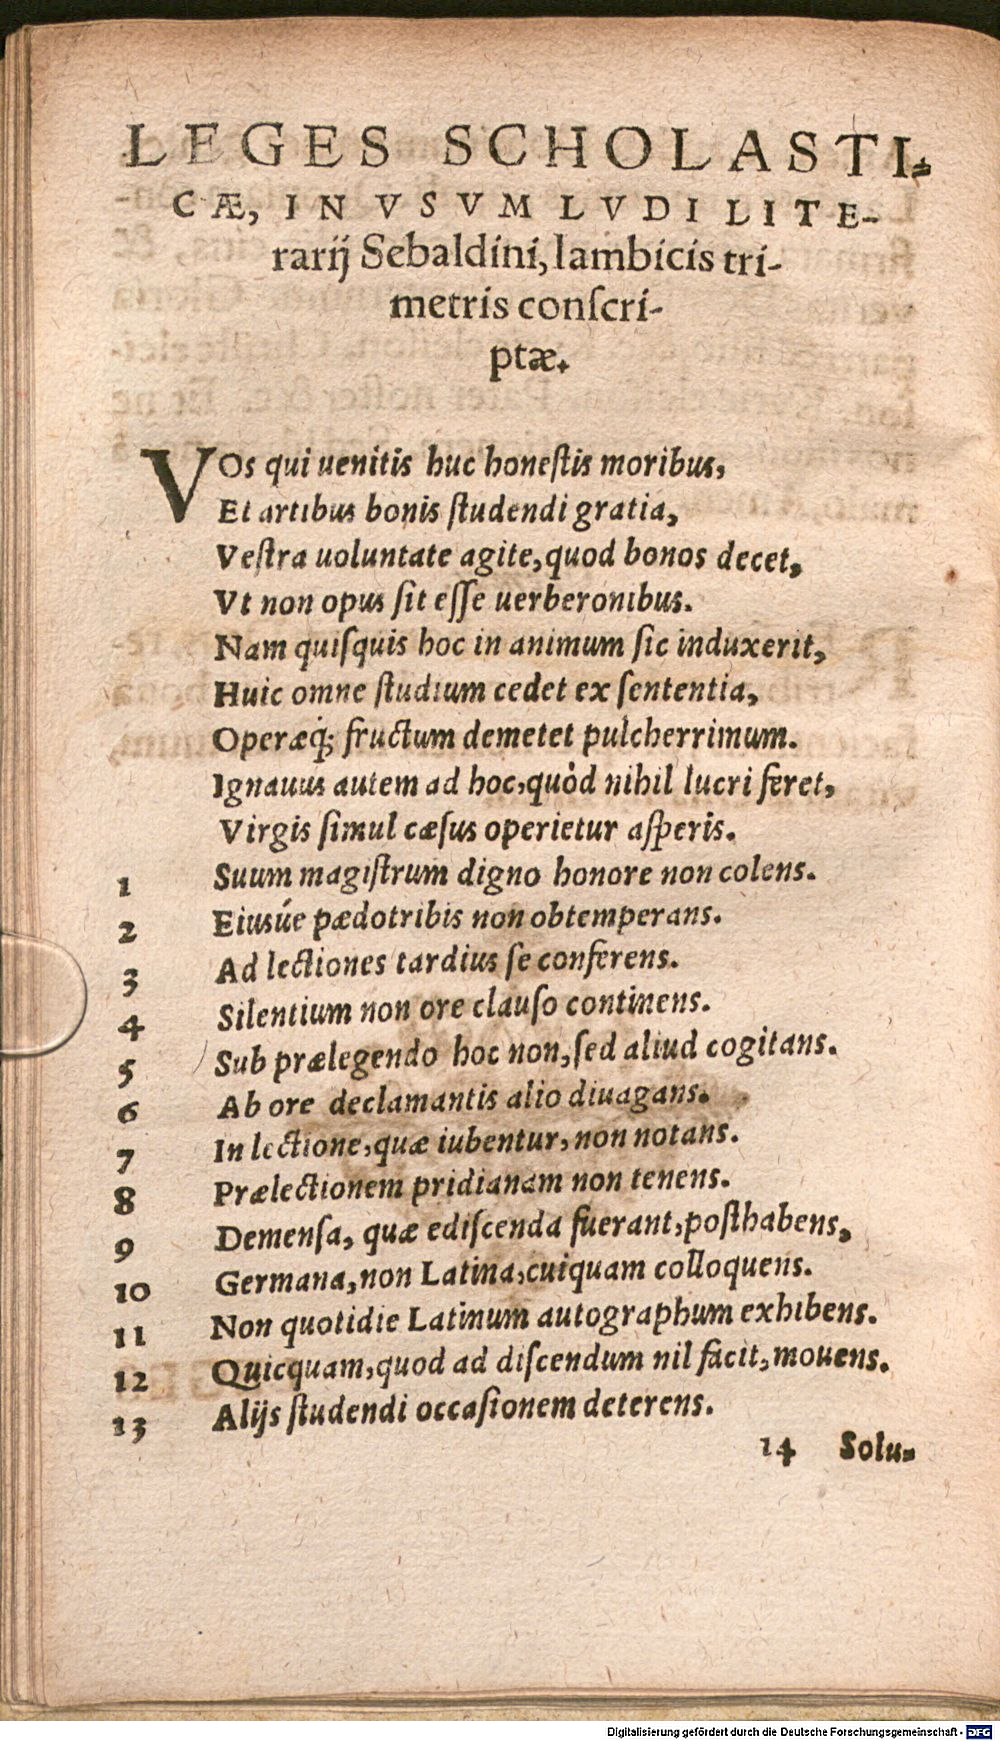 LEGES SCHOLASTI-
CÆ, IN VSVM LVDI LITE-
rarij Sebaldini, Iambicis tri-
metris conſcri-
ptæ.
VOs qui uenitis huc honeſtis moribus,
Et artibus bonis ſtudendi gratia,
Veſtra uoluntate agite, quod bonos decet,
Vt non opus ſit eſſe uerberonibus.
Nam quiſquis hoc in animum ſic induxerit,
Huic omne ſtudium cedet ex ſententia,
Operæq́; fructum demetet pulcherrimum.
Ignauus autem ad hoc, quòd nihil lucri feret,
Virgis ſimul cæſus operietur aſperis.
1 Suum magiſtrum digno honore non colens.
2 Eiusúe pædotribis non obtemperans.
3 Ad lectiones tardius ſe conferens.
4 Silentium non ore clauſo continens.
5 Sub prælegendo hoc non, ſed aliud cogitans.
6 Ab ore declamantis alio diuagans.
7 In lectione, quæ iubentur, non notans.
8 Prælectionem pridianam non tenens.
9 Demenſa, quæ ediſcenda fuerant, poſthabens,
10 Germana, non Latina, cuiquam colloquens.
11 Non quotidie Latinum autographum exhibens.
12 Quicquam, quod ad diſcendum nil facit, mouens.
13 Alijs ſtudendi occaſionem deterens.
14 Solu-
Digitalisierung gefördert durch die Deutsche Forschungsgemeinschaft - DFG